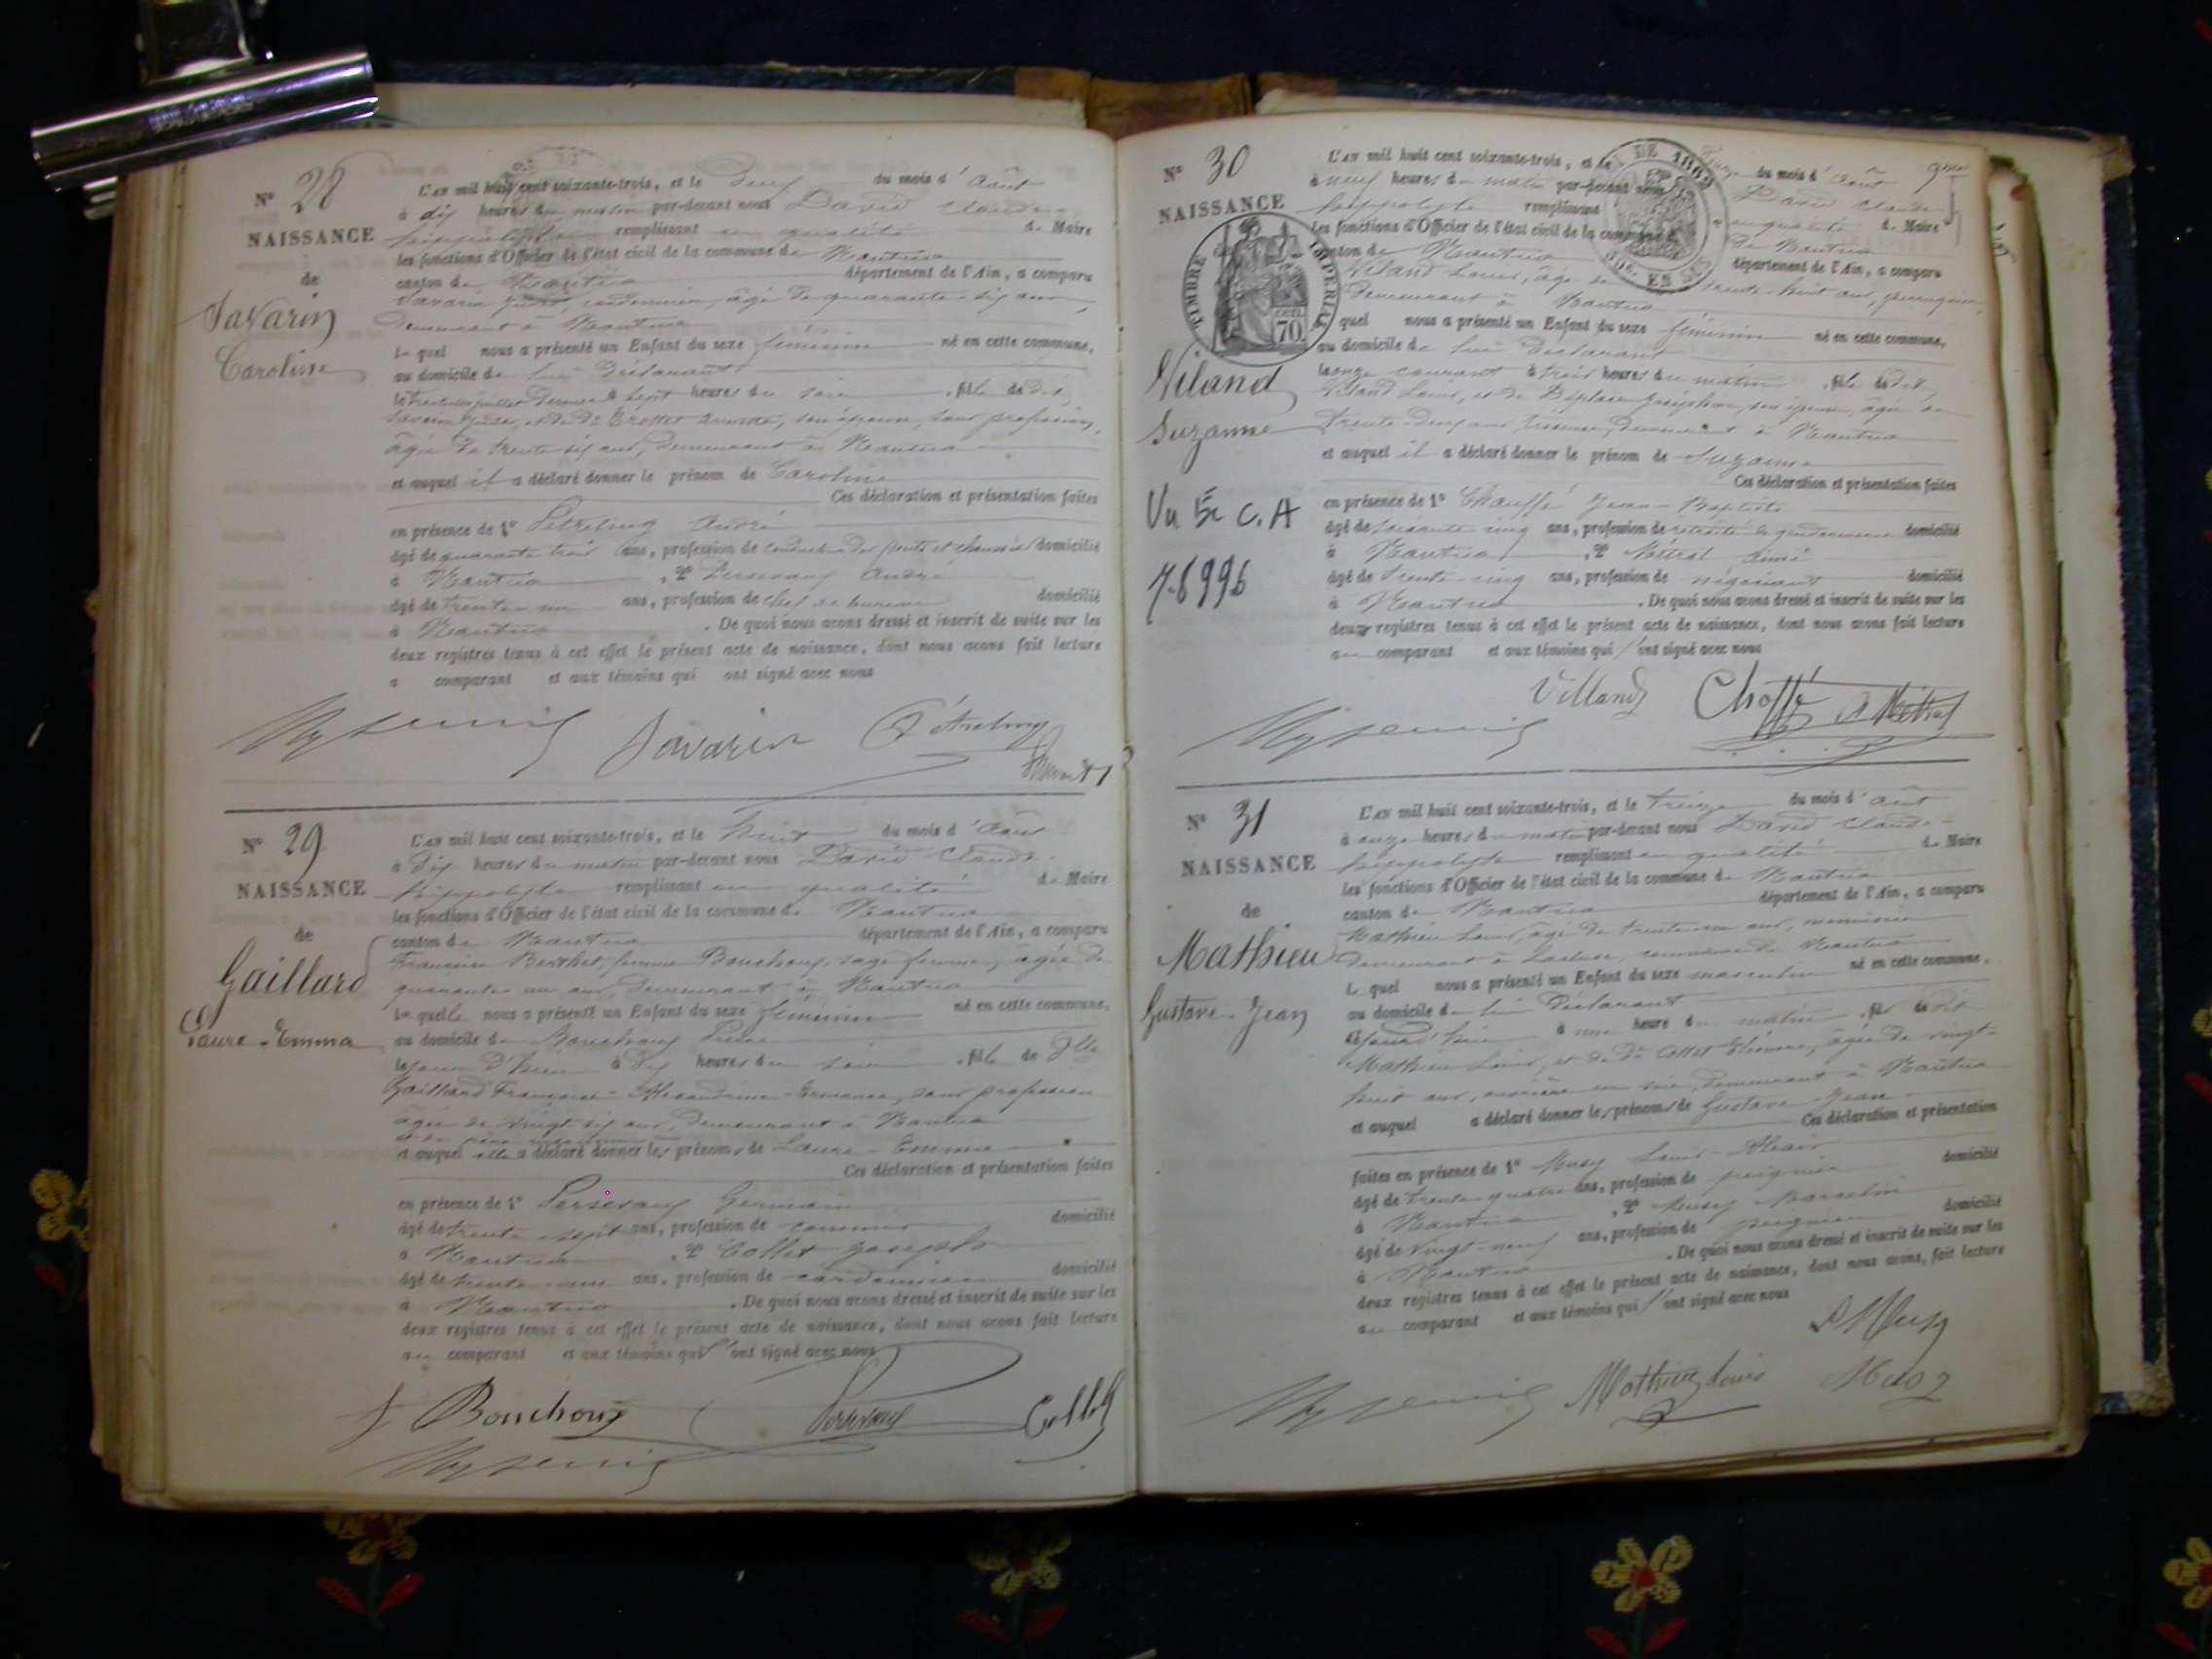 N° 28
NAISSANCE
de
Savarin
Caroline
L'an mil huit cent soixante-trois, et le deux du mois d'Août
à dix heures du matin par-devant nous David Claude
hippolyte remplissant en qualité de Maire
les fonctions d'Officier de l'état civil de la commune de Nantua
canton de Nantua département de l'Ain, a comparu
Savarin cordonnier, âgé de quarante-six ans,
demeurant à Nantua
Lequel nous a présenté un Enfant du sexe féminin né en cette commune,
au domicile de lui déclarant
le trente-un juillet dernier à sept heures du soir, fille de dit
Savarin et de De son épouse, sans profession,
âgée de trente six ans, demeurant à Nantua
et auquel il a déclaré donner le prénom de Caroline
Ces déclaration et présentation faites
en présence de 1° Pétreling André
âgé de quarante trois ans, profession de conducteur des ponts et chaussées domicilié
à Nantua, 2° André
âgé de trente un ans, profession de chef de bureau domicilié
à Nantua. De quoi nous avons dressé et inscrit de suite sur les
deux registres tenus à cet effet le présent acte de naissance, dont nous avons fait lecture
a comparant et aux témoins qui ont signé avec nous
Savarin Pétreling
N° 29
NAISSANCE
de
Gaillard
Laure-Emma
L'an mil huit cent soixante-trois, et le huit du mois d'Août
à dix heures du matin par-devant nous David Claude
hippolyte remplissant en qualité de Maire
les fonctions d'Officier de l'état civil de la commune de Nantua
canton de Nantua département de l'Ain, a comparu
Françoise Berthet, femme Bouchoux, sage femme, âgée de
quarante un ans, demeurant à Nantua
Laquelle nous a présenté un Enfant du sexe féminin né en cette commune,
au domicile de Bouchoux
le jour d'hier à dix heures du soir, fille de Dlle
Gaillard Françoise-Alexandrine-Ermance, sans profession
âgée de vingt six ans, demeurant à Nantua
et auquel elle a déclaré donner les prénoms de Laure-Emma
Ces déclaration et présentation faites
en présence de 1° Germain
âgé de trente sept ans, profession de commis domicilié
à Nantua, 2° Collet Joseph
âgé de trente un ans, profession de cordonnier domicilié
à Nantua. De quoi nous avons dressé et inscrit de suite sur les
deux registres tenus à cet effet le présent acte de naissance, dont nous avons fait lecture
au comparant et aux témoins qui ont signé avec nous
f Bouchoux Collet
N° 30
NAISSANCE
TIMBRE IMPERIAL
70
Viland
Suzanne
Vu 5e C.A
7.6996
L'an mil huit cent soixante-trois, et le du mois d'Août
à neuf heures du matin par-devant nous David Claude
hippolyte remplissant en qualité de Maire
les fonctions d'Officier de l'état civil de la commune de Nantua
canton de Nantua département de l'Ain, a comparu
Viland Louis, âgé de trente-huit ans,
demeurant à Nantua
quel nous a présenté un Enfant du sexe féminin né en cette commune,
au domicile de lui déclarant
le onze courant à trois heures du matin, fille de dit
Viland Louis, et de Joséphine, son épouse, âgée de
trente-deux ans, demeurant à Nantua
et auquel il a déclaré donner le prénom de Suzanne
Ces déclaration et présentation faites
en présence de 1° Chauffé Jean-Baptiste
âgé de soixante cinq ans, profession de retraité de gendarmerie domicilié
à Nantua, 2° Mitral Aimé
âgé de trente-cinq ans, profession de négociant domicilié
à Nantua. De quoi nous avons dressé et inscrit de suite sur les
deux registres tenus à cet effet le présent acte de naissance, dont nous avons fait lecture
au comparant et aux témoins qui ont signé avec nous
Villand Choffé A Mitral
N° 31
NAISSANCE
de
Mathieu
Gustave-Jean
L'an mil huit cent soixante-trois, et le treize du mois d'août
à onze heures du matin par-devant nous David Claude
hippolyte remplissant en qualité de Maire
les fonctions d'Officier de l'état civil de la commune de Nantua
canton de Nantua département de l'Ain, a comparu
Mathieu Louis, âgé de trente un ans, menuisier
demeurant à Lacluse, commune de Nantua
Lequel nous a présenté un Enfant du sexe masculin né en cette commune,
au domicile de lui déclarant
aujourd'hui à une heure du matin, fils de dit
Mathieu Louis, et de De Collet âgée de vingt-
huit ans, ouvrière en soie, demeurant à Nantua
et auquel a déclaré donner les prénoms de Gustave-Jean
Ces déclaration et présentation
faites en présence de 1° Louis
âgé de trente-quatre ans, profession de peignier domicilié
à Nantua, 2° Marcelin
âgé de vingt-neuf ans, profession de peignier domicilié
à Nantua. De quoi nous avons dressé et inscrit de suite sur les
deux registres tenus à cet effet le présent acte de naissance, dont nous avons, fait lecture
au comparant et aux témoins qui ont signé avec nous
Mathieu Louis